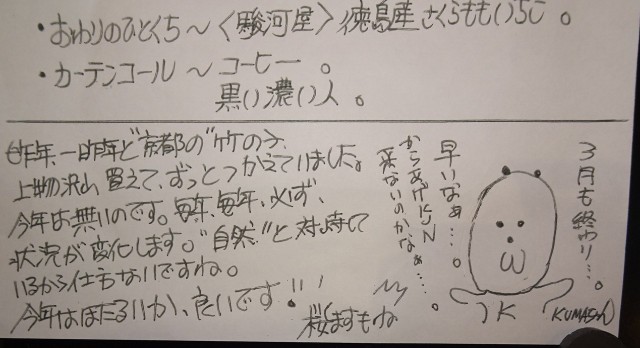 ・おわりのひとくち～〈駿河屋〉徳島産さくらももいちご。
・カーテンコール～コーヒー。
黒い濃い人。
昨年、一昨年と"京都の"竹の子、
上物沢山買えて、ずっとつかえていました。
今年は無いのです。毎年、毎年、必ず、
状況が変化します。"自然"と対峙して
いるから仕方ないですね。
今年はほたるいか、良いです!!
桜ますもね
早いなぁ…。
からあげKUN
来ないのかなぁ…。
3月も終わり…。
KUMASAN